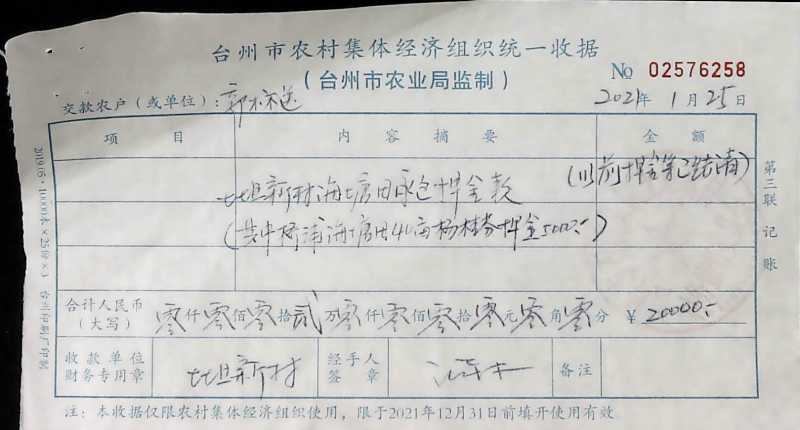 台州市农村集体经济组织统一收据
(台州市农业局监制)
№ 02576258
交款农户(或单位): 郭
2021年 1月25日
项 目 内 容 摘 要 金 额
新村海塘田承包押金款 (以前押金条已结清)
(其中桥浦海塘田 押金5000:-)
合计人民币(大写) 零仟零佰零拾贰万零仟零佰零拾零元零角零分 ¥ 20000:-
收款单位财务专用章 新村 经手人签章 备注
注: 本收据仅限农村集体经济组织使用, 限于2021年12月31日前填开使用有效
第三联 记账
2019.05·10000本×25份×3 台州印刷厂印制